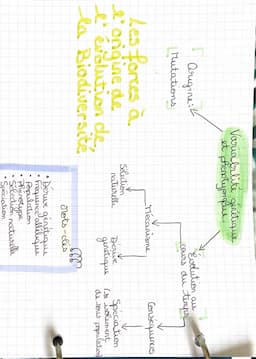 Les forces à
l'origine de
l'évolution de
la Biodiversité
Variabilité génétique
et phénotypique
Origine :
Mutations
Évolution au
cours du temps
Mécanismes
Conséquences
Sélection
naturelle
Dérive
génétique
Spéciation
de sous population
Mots-clés
• Dérive génétique
• Fréquence allélique
• Population
• Phénotype
• Sélection naturelle
• Spéciation